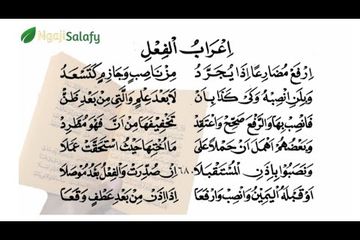 NgajiSalafy
اِعْرَابُ الْفِعْلِ
اِرْفَعْ مُضَارِعًا اِذَا يُجَرَّدُ مِنْ نَاصِبٍ وَجَازِمٍ كَتَسْعَدُ
وَبِلَنِ انْصِبْهُ وَكَيْ كَذَا بِاَنْ لَا بَعْدَ عِلْمٍ وَالَّتِي مِنْ بَعْدِ ظَنّْ
فَانْصِبْ بِهَا وَالرَّفْعَ صَحِّحْ وَاعْتَقِدْ تَخْفِيْفَهَا مِنْ اَنَّ فَهْوَ مُطَّرِدْ
وَبَعْضُهُمْ اَهْمَلَ اَنْ حَمْلًا عَلَى مَا اُخْتِهَا حَيْثُ اسْتَحَقَّتْ عَمَلَا
وَنَصَبُوْا بِاِذَنِ الْمُسْتَقْبَلَا ٦٨٠ اِنْ صُدِّرَتْ وَالْفِعْلُ بَعْدُ مُوْصَلَا
اَوْ قَبْلَهُ الْيَمِيْنُ وَانْصِبْ وَارْفَعَا اِذَا اِذَنْ مِنْ بَعْدِ عَطْفٍ وَقَعَا